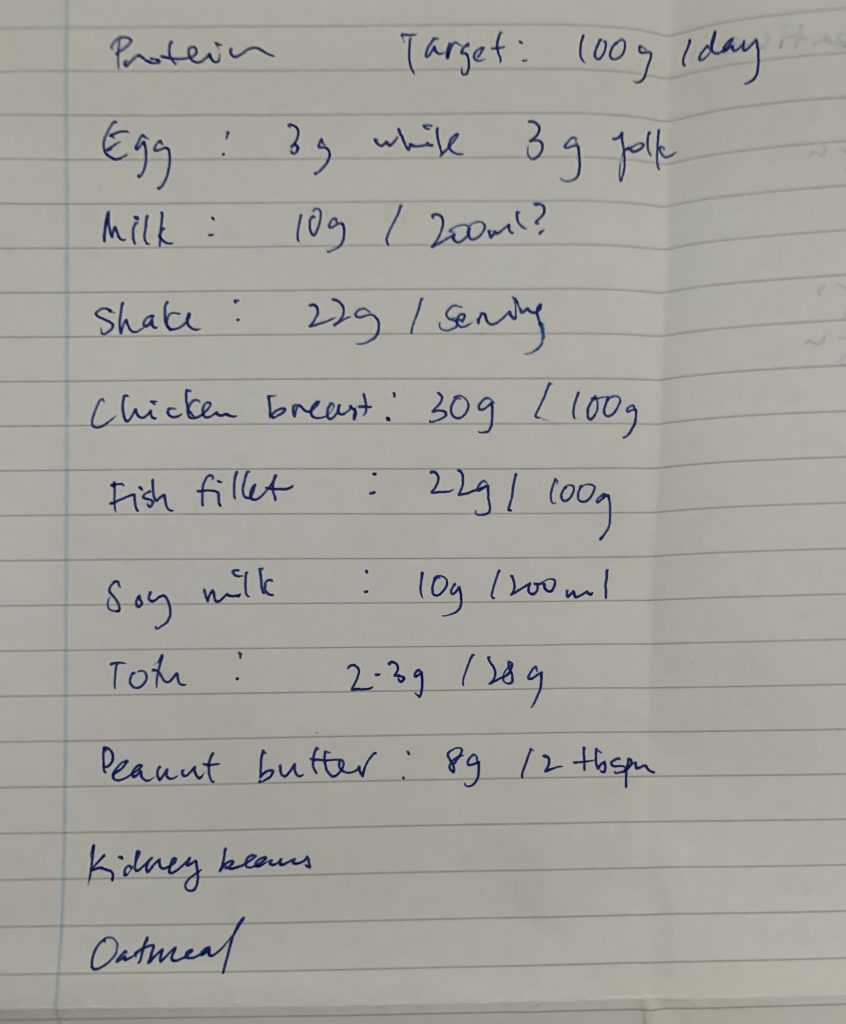 Protein Target: 100g /day
Egg : 3g white 3g yolk
Milk : 10g / 200ml?
Shake : 22g / serving
Chicken breast : 30g / 100g
Fish fillet : 22g / 100g
Soy milk : 10g /200ml
Tofu : 2-3g /28g
Peanut butter : 8g /2 tbspn
Kidney beans
Oatmeal